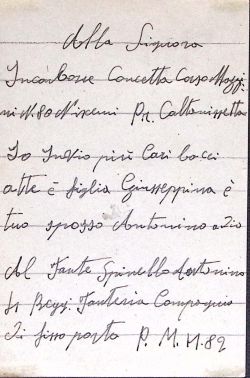 Alla Signora
Incorbase Concetta Corso Mazzi
ni N. 80 Niscemi Pr. Caltanissetta
Io Invio più Cari baci
atte è figlia Giuseppina è
tuo sposso Antonino adio
Al Fante Spinello Antonino
Regg. Fanteria Compagnia
di posta P. M. N. 82